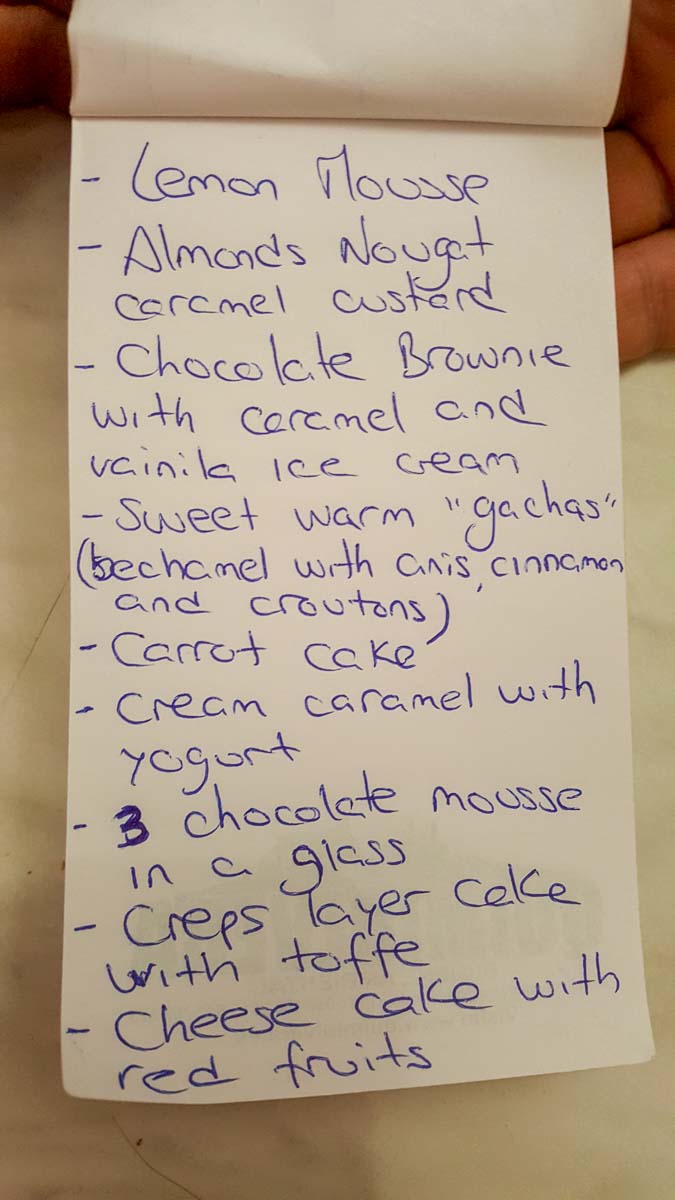 - Lemon Mousse
- Almonds Nougat
caramel custard
- Chocolate Brownie
with caramel and
vainila ice cream
- Sweet warm "gachas"
(bechamel with anis, cinnamon
and croutons)
- Carrot cake
- Cream caramel with
yogurt
- 3 chocolate mousse
in a glass
- Creps layer cake
with toffe
- Cheese cake with
red fruits